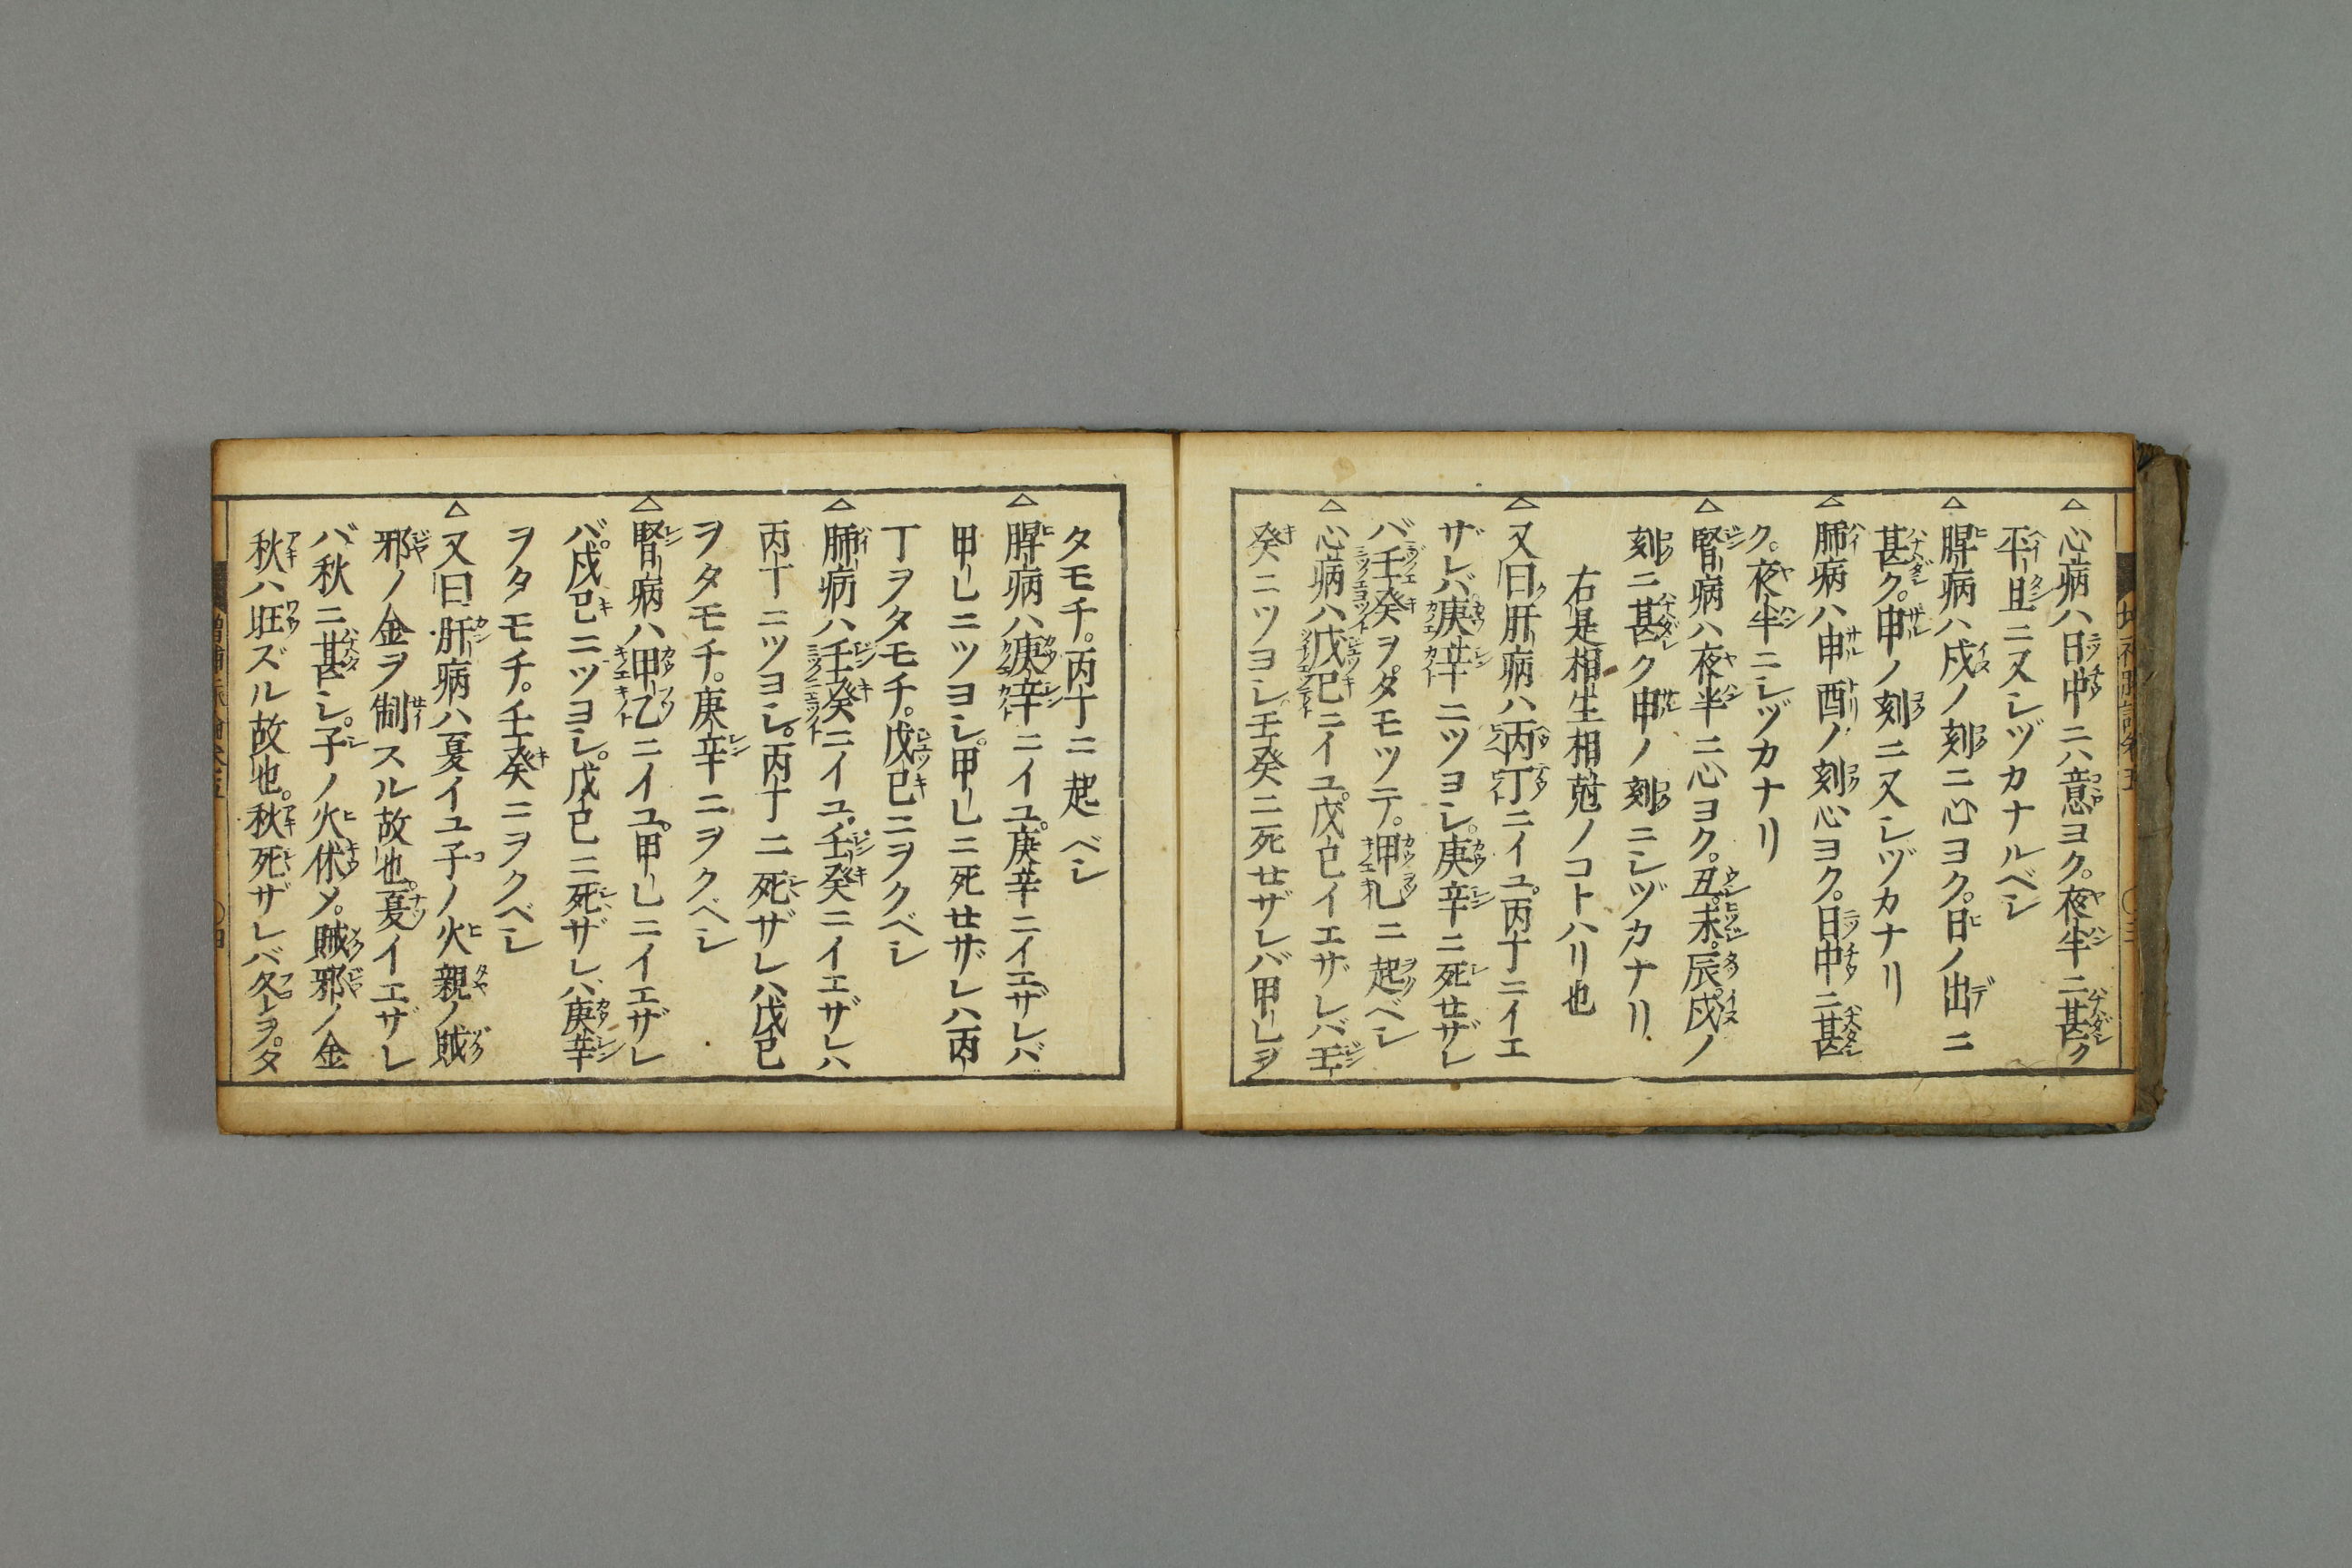 △心病ハ日中ニハ意ヨク。夜半ニ甚ク
平旦ニ又シヅカナルベシ
△脾病ハ戌ノ刻ニ心ヨク。日ノ出ニ
甚ク。申ノ刻ニ又シヅカナリ
△肺病ハ申酉ノ刻心ヨク。日中ニ甚
ク。夜半ニシヅカナリ
△腎病ハ夜半ニ心ヨク。丑。未。辰。戌ノ
刻ニ甚ク申ノ刻ニシヅカナリ
右是相生相尅ノコトハリ也
△又曰肝病ハ丙丁ニイユ。丙丁ニイエ
ザレバ庚辛ニツヨシ。庚辛ニ死セザレ
バ壬癸ヲタモツテ。甲乙ニ起ベシ
△心病ハ戊己ニイユ。戊己イエザレバ壬
癸ニツヨシ。壬癸ニ死セザレバ甲乙ヲ
タモチ。丙丁ニ起ベシ
△脾病ハ庚辛ニイユ。庚辛ニイエザレバ
甲乙ニツヨシ。甲乙ニ死セザレハ丙
丁ヲタモチ。戊己ニヲクベシ
△肺病ハ壬癸ニイユ。壬癸ニイエザレハ
丙丁ニツヨシ。丙丁ニ死ザレハ戊己
ヲタモチ。庚辛ニヲクベシ
△腎病ハ甲乙ニイユ。甲乙ニイエザレ
バ。戊己ニツヨシ。戊己ニ死ザレハ庚辛
ヲタモチ。壬癸ニヲクベシ
△又曰肝病ハ夏イユ子ノ火親ノ賊
邪ノ金ヲ制スル故也。夏イエザレ
バ秋ニ甚シ。子ノ火休メ。賊邪ノ金
秋ハ旺ズル故也。秋死ザレバ冬ヲタ